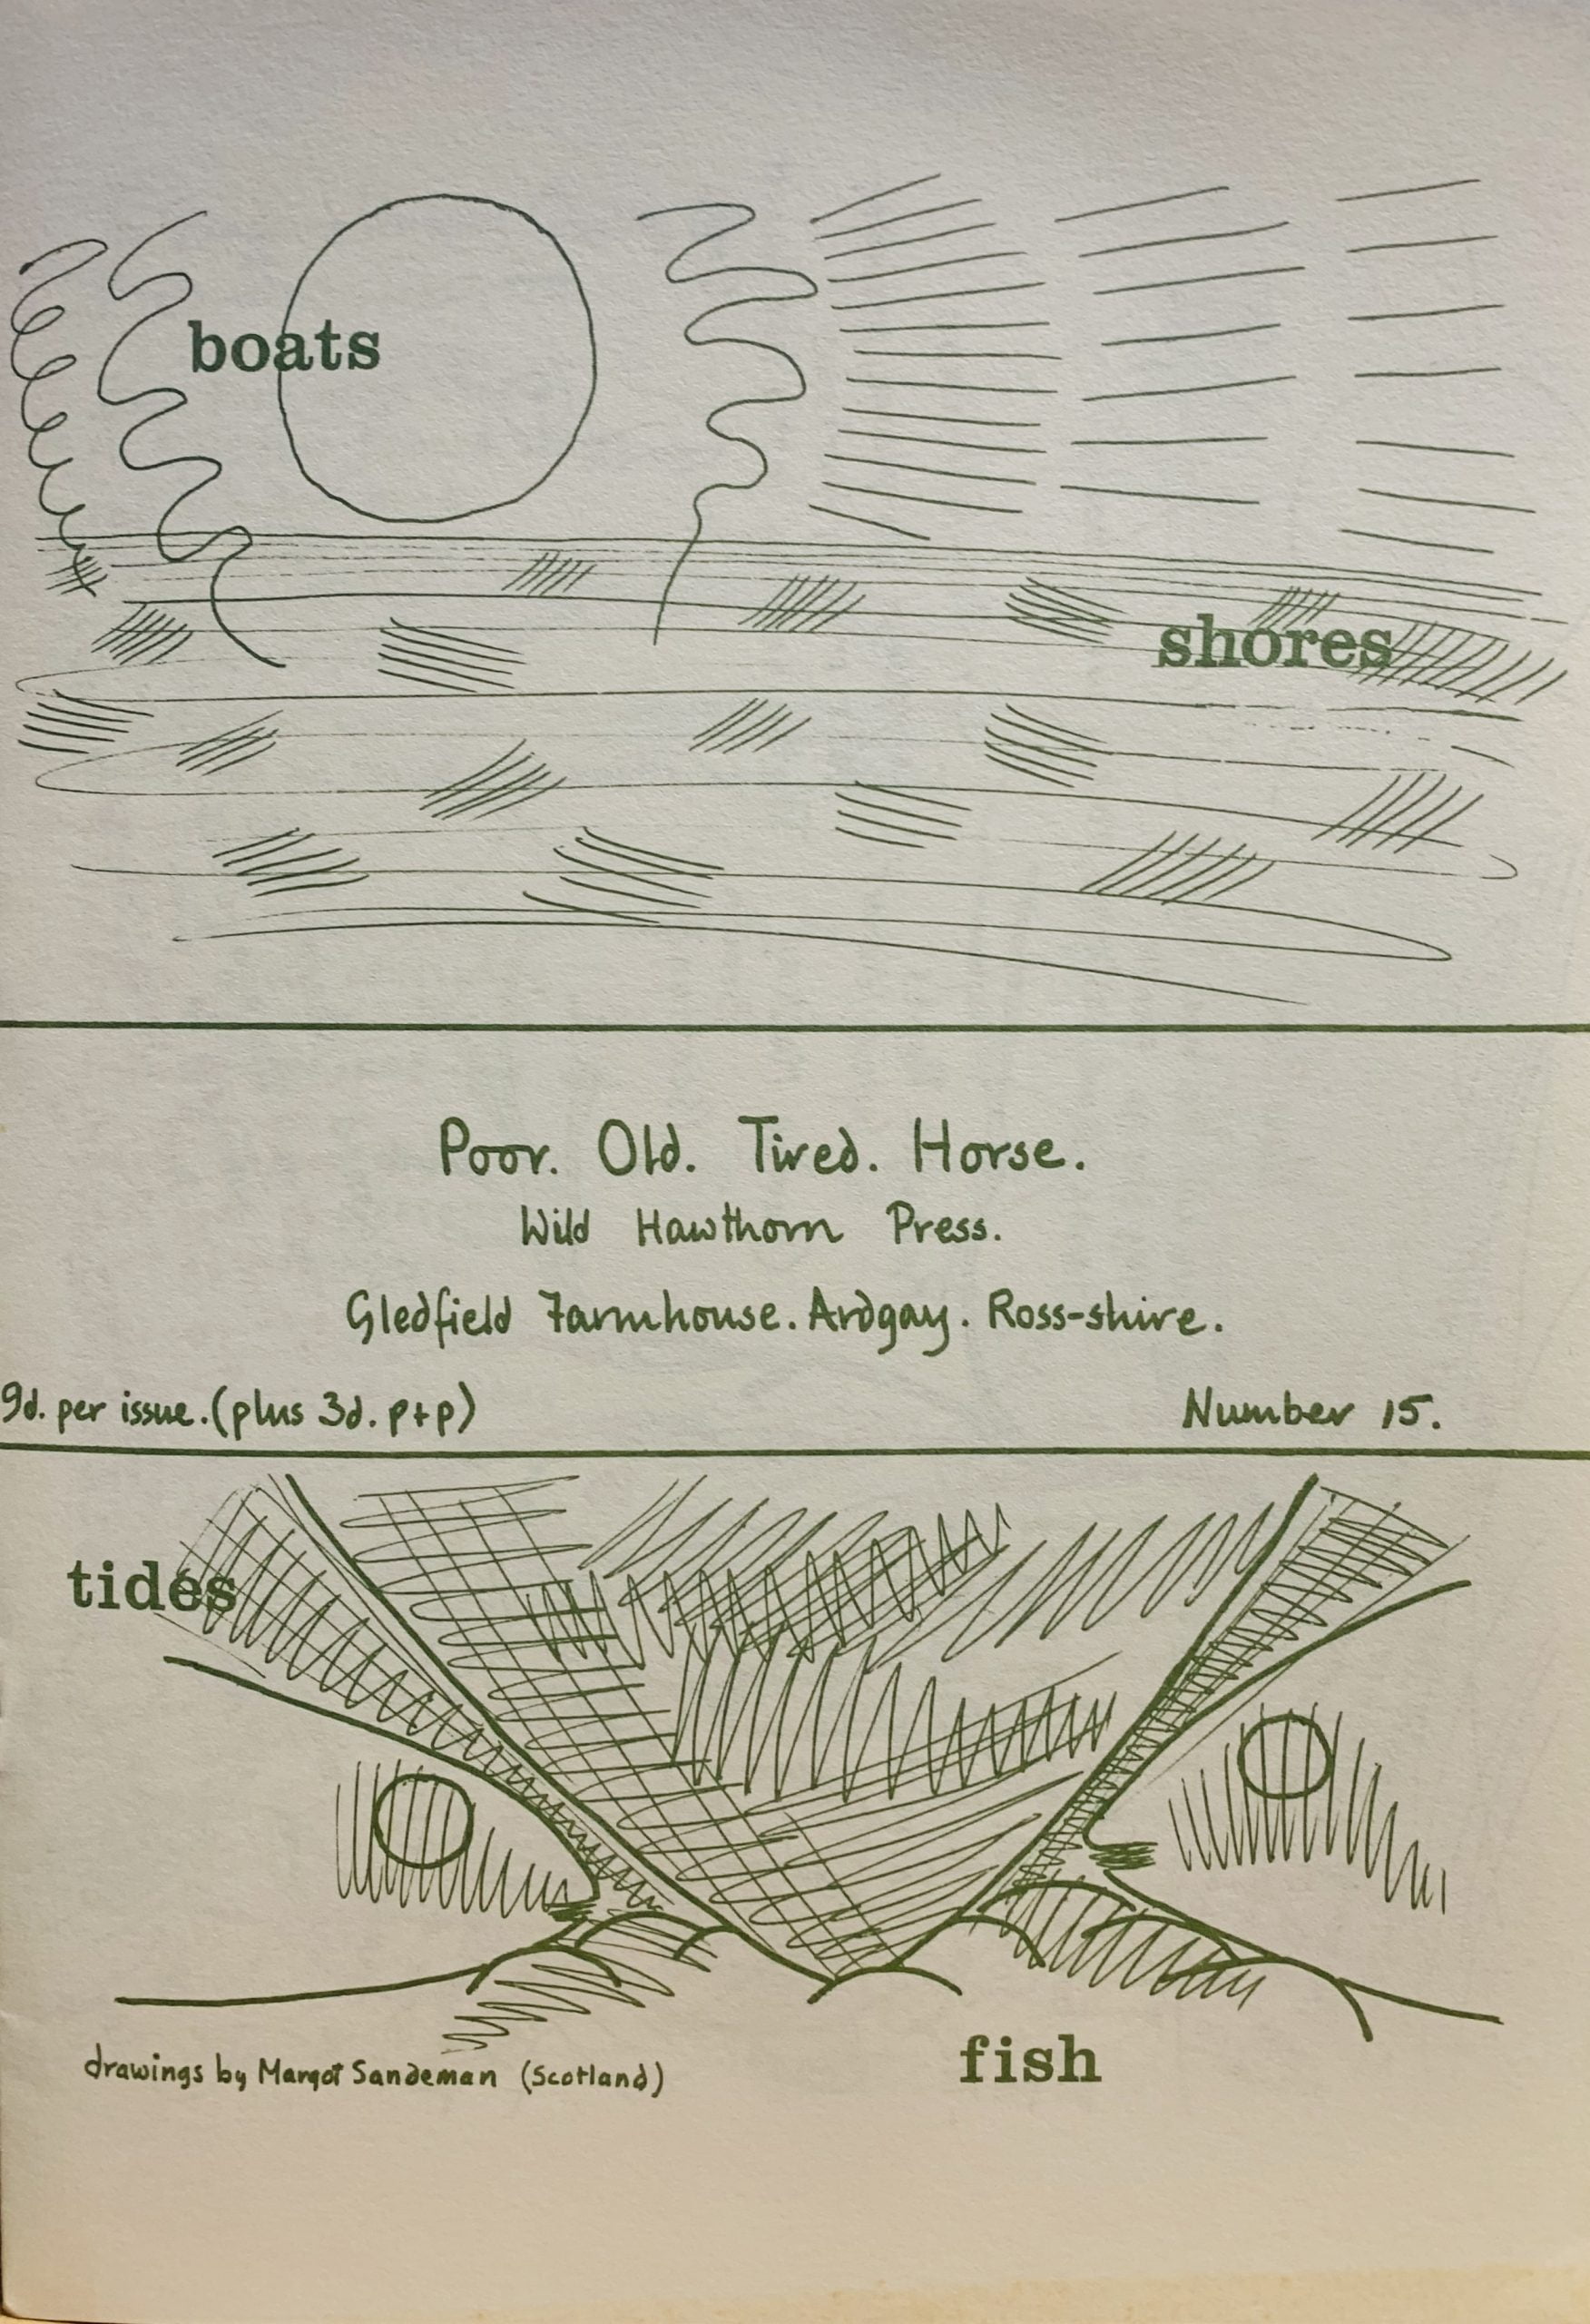 boats
shores
Poor. Old. Tired. Horse.
Wild Hawthorn Press.
Gledfield Farmhouse. Ardgay. Ross-shire.
9d. per issue. (plus 3d. p+p)
Number 15.
tides
fish
drawings by Margot Sandeman (Scotland)